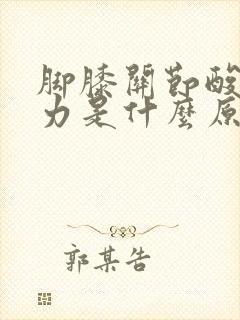 脚膝關節酸
力是什麼原
郭某告